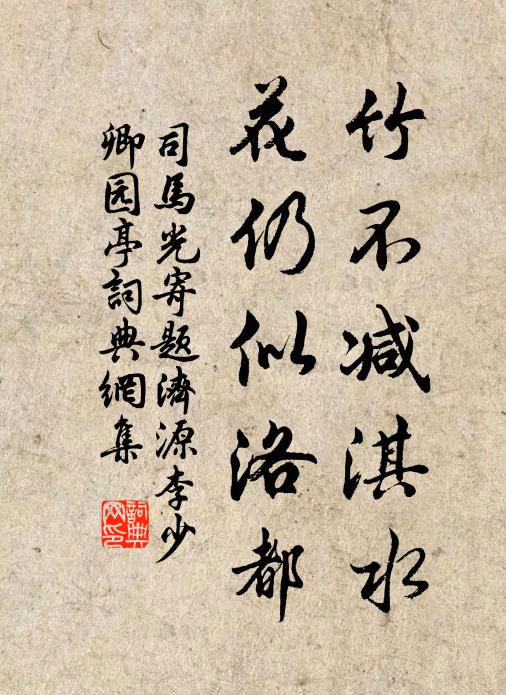 竹不减淇水
花仍似洛都
司馬光寄题濟源李少
卿园亭詞典網集
詞典网印